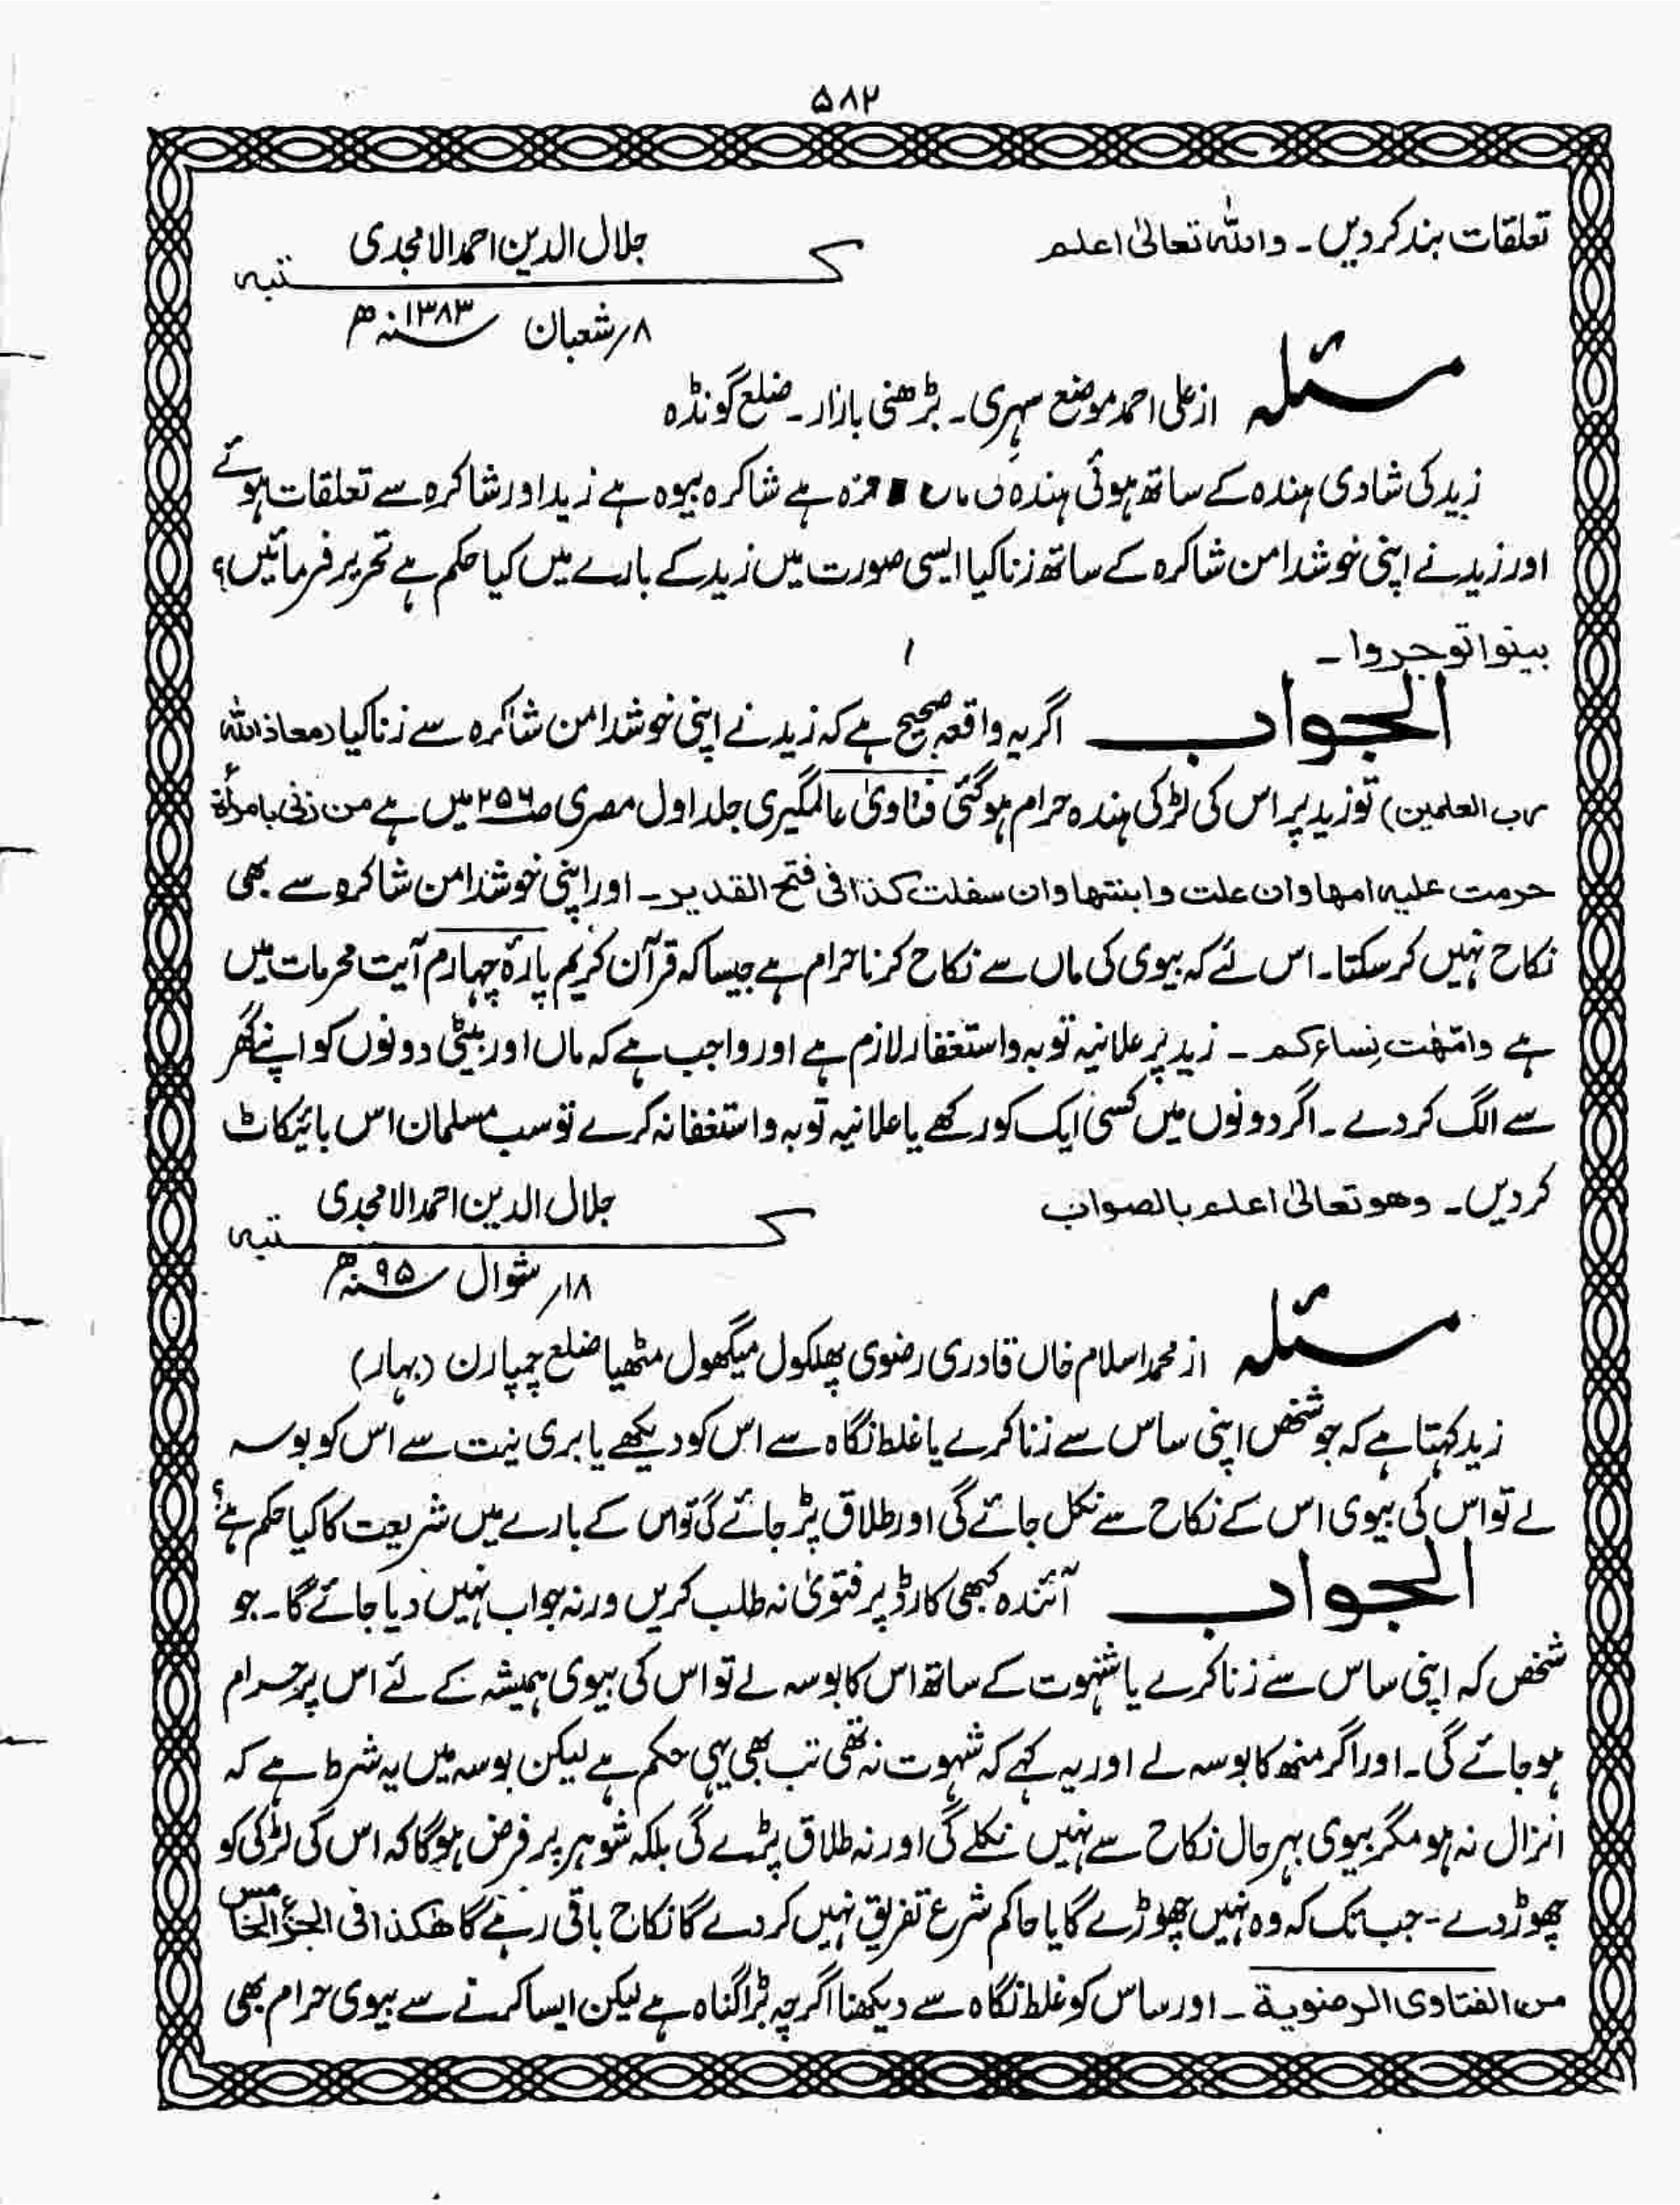 ۵۸۲
تعلقات بند کردیں۔ واللہ تعالیٰ اعلم
جلال الدین احمد الامجدی
کتبہ
۸؍ شعبان ۱۳۸۳سنہ ھ
مسئلہ از علی احمد موضع سہری۔ بڑھنی بازار۔ ضلع گونڈہ
زید کی شادی ہندہ کے ساتھ ہوئی ہندہ کی ماں ہے شاکرہ بیوہ ہے زید اور شاکرہ سے تعلقات ہوئے
اور زید نے اپنی خوشدامن شاکرہ کے ساتھ زنا کیا ایسی صورت میں زید کے بارے میں کیا حکم ہے تحریر فرمائیں؟
بینوا توجروا۔
الجواب اگر یہ واقعہ صحیح ہے کہ زید نے اپنی خوشدامن شاکرہ سے زنا کیا (معاذ اللہ
رب العلمین) تو زید پر اس کی لڑکی ہندہ حرام ہوگئی فتاویٰ عالمگیری جلد اول مصری ص۲۵۶ میں ہے من زنی بامرأۃ
حرمت علیہ امھا وان علت وابنتھا وان سفلت کذا فی فتح القدیر۔ اور اپنی خوشدامن شاکرہ سے بھی
نکاح نہیں کر سکتا۔ اس لئے کہ بیوی کی ماں سے نکاح کرنا حرام ہے جیسا کہ قرآن کریم پارۂ چہارم آیت محرمات میں
ہے وامّھٰت نِساءکم۔ زید پر علانیہ توبہ واستغفار لازم ہے اور واجب ہے کہ ماں اور بیٹی دونوں کو اپنے گھر
سے الگ کر دے۔ اگر دونوں میں کسی ایک کو رکھے یا علانیہ توبہ واستغفا نہ کرے تو سب مسلمان اس بائیکاٹ
کردیں۔ وھو تعالیٰ اعلم بالصواب
جلال الدین احمد الامجدی
کتبہ
۱۸؍ شوال ۹۵سنہ ھ
مسئلہ از محمد اسلام خاں قادری رضوی پھلکول میگھول مٹھیا ضلع چمپارن (بہار)
زید کہتا ہے کہ جو شخص اپنی ساس سے زنا کرے یا غلط نگاہ سے اس کو دیکھے یا بری نیت سے اس کو بوسہ
لے تو اس کی بیوی اس کے نکاح سے نکل جائے گی اور طلاق پڑ جائے گی تو اس کے بارے میں شریعت کا کیا حکم ہے؟
الجواب آئندہ کبھی کارڈ پر فتویٰ نہ طلب کریں ورنہ جواب نہیں دیا جائے گا۔ جو
شخص کہ اپنی ساس سے زنا کرے یا شہوت کے ساتھ اس کا بوسہ لے تو اس کی بیوی ہمیشہ کے لئے اس پر حرام
ہوجائے گی۔ اور اگر منھ کا بوسہ لے اور یہ کہے کہ شہوت نہ تھی تب بھی یہی حکم ہے لیکن بوسہ میں یہ شرط ہے کہ
انزال نہ ہو مگر بیوی بہر حال نکاح سے نہیں نکلے گی اور نہ طلاق پڑے گی بلکہ شوہر پر فرض ہوگا کہ اس کی لڑکی کو
چھوڑ دے۔ جب تک کہ وہ نہیں چھوڑے گا یا حاکم شرع تفریق نہیں کر دے گا نکاح باقی رہے گا ھکذا فی الجزء الخامس
من الفتاوی الرضویۃ۔ اور ساس کو غلط نگاہ سے دیکھنا اگرچہ بڑا گناہ ہے لیکن ایسا کرنے سے بیوی حرام بھی